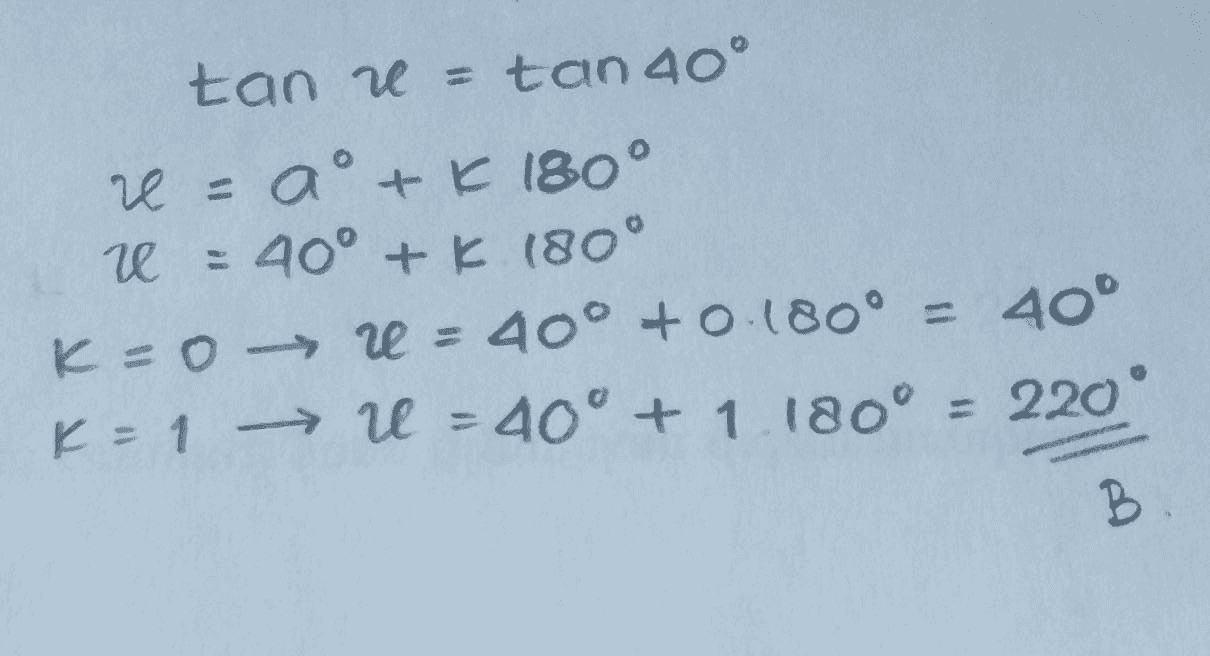 tan x = tan 40°
x = a° + K 180°
x = 40° + K 180°
K = 0 → x = 40° + 0.180° = 40°
K = 1 → x = 40° + 1 180° = 220°
B.